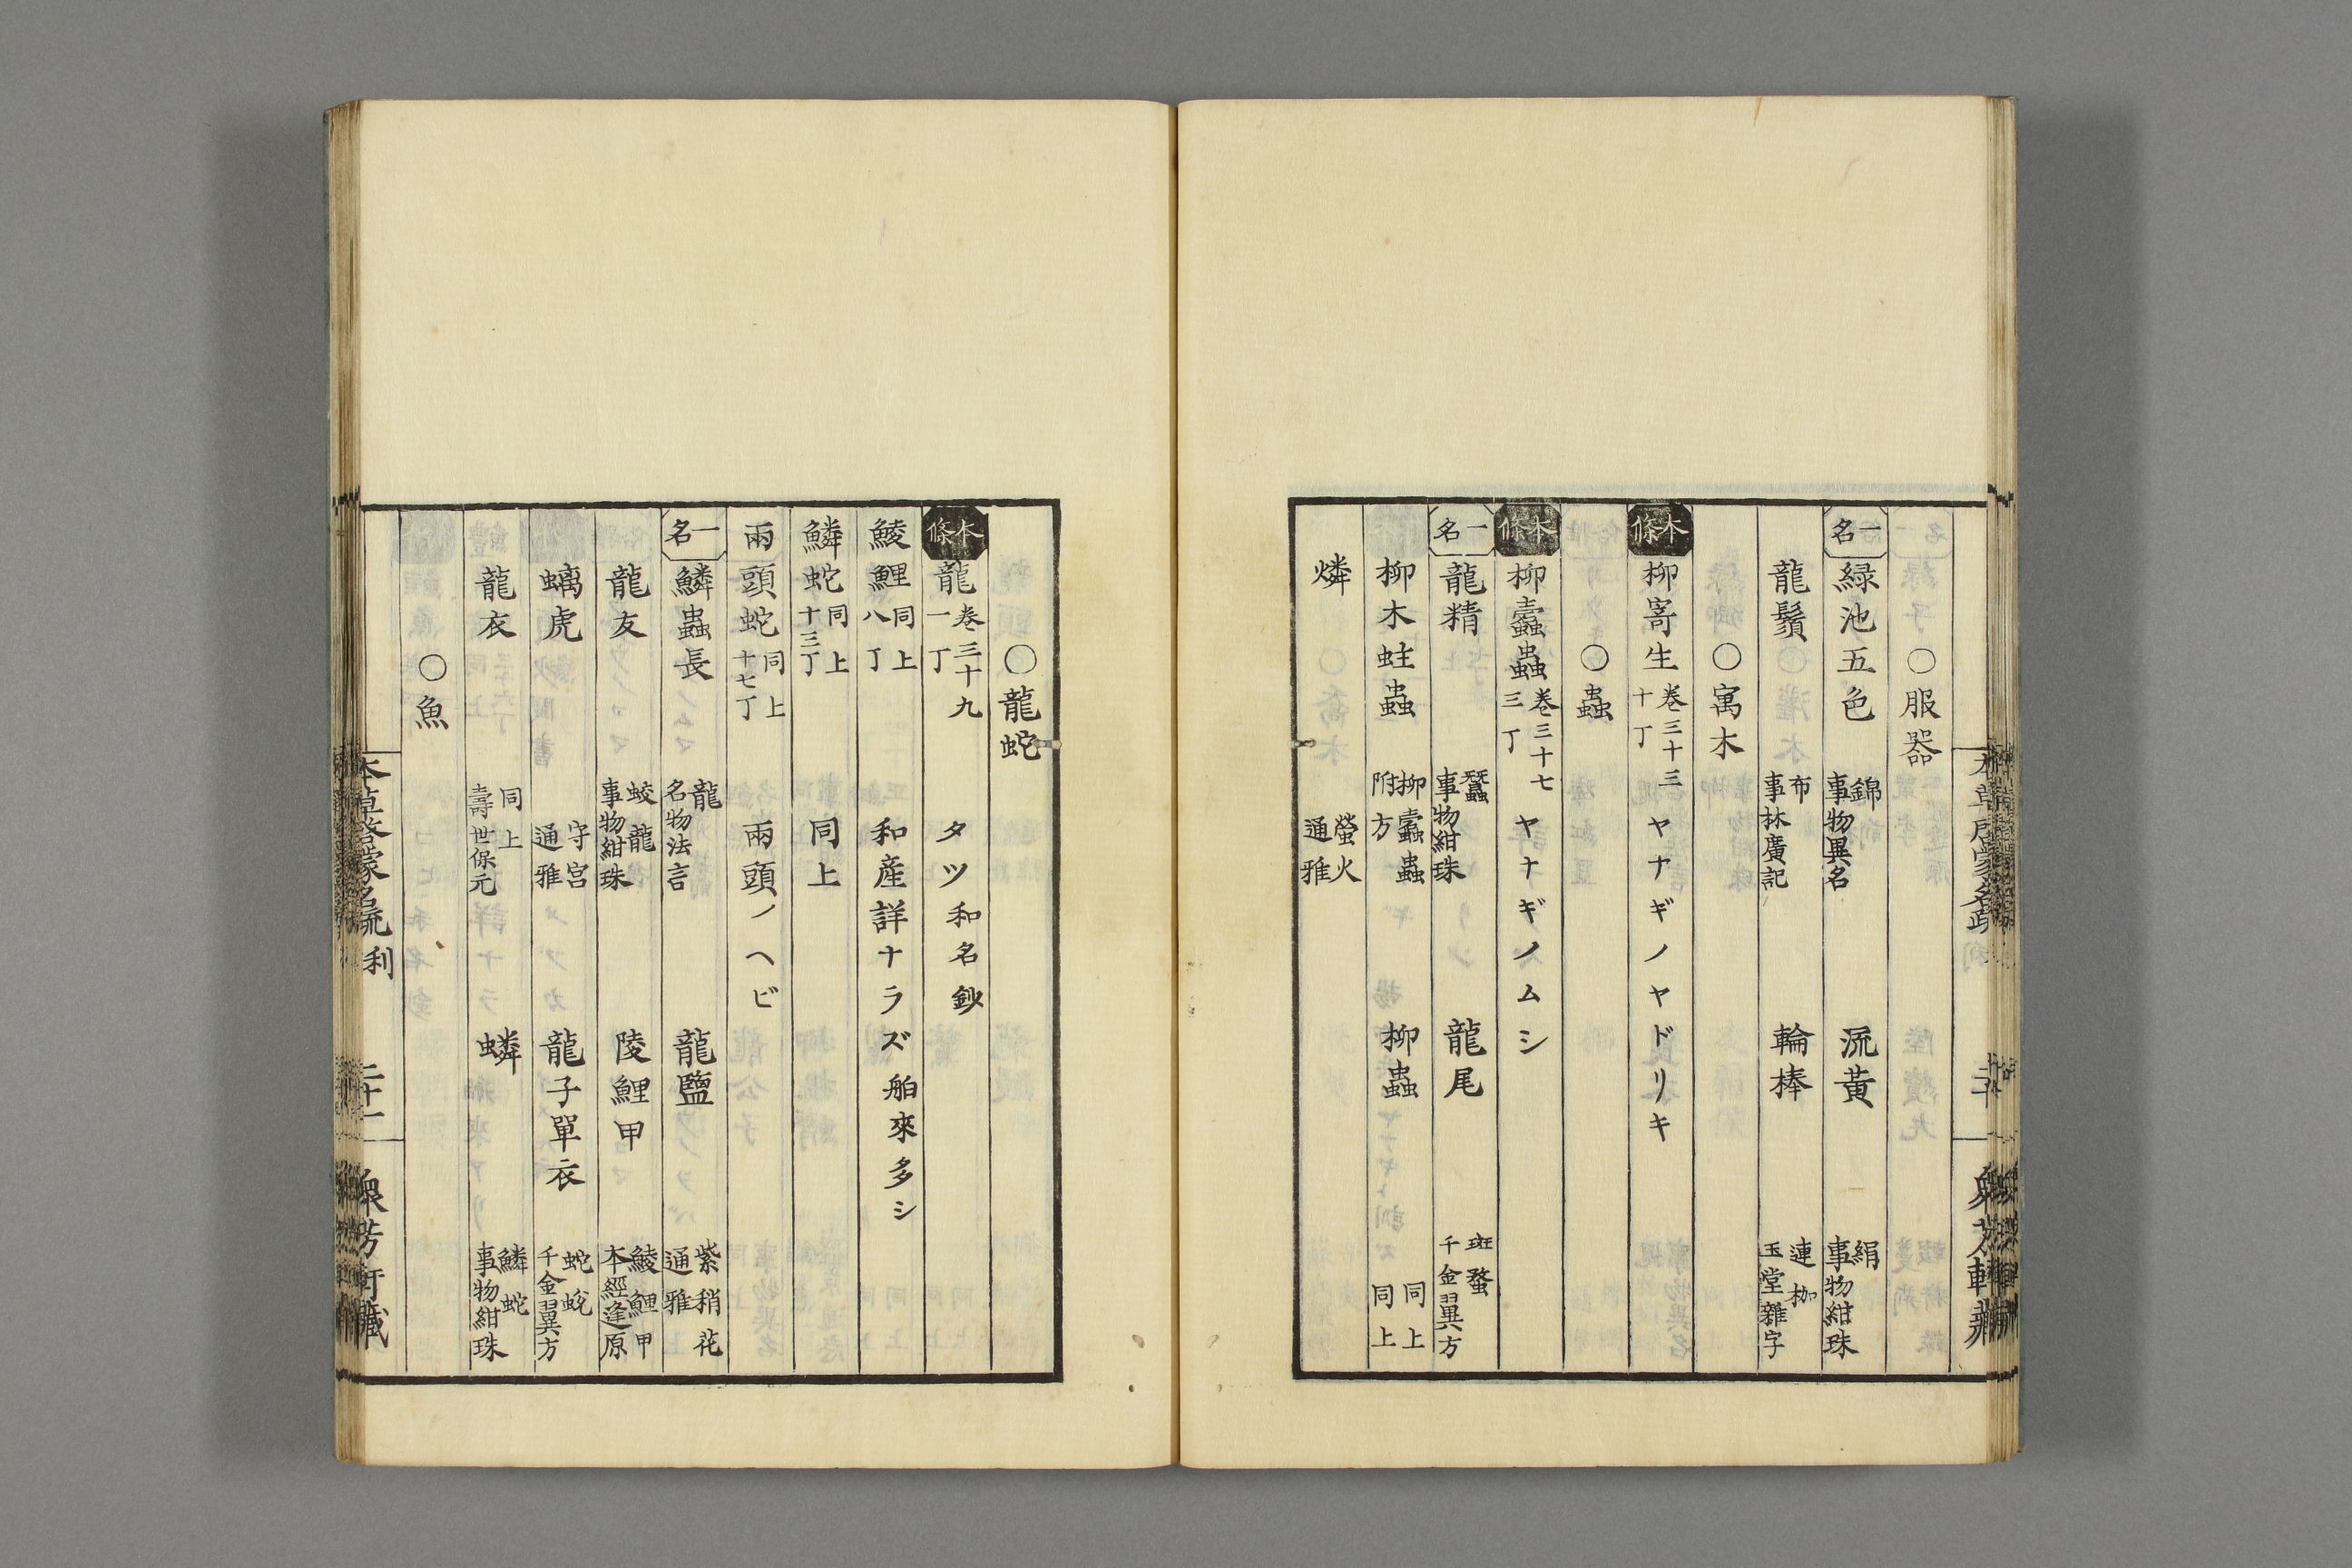 〇服器
一名 緑池五色 錦 事物異名 流黃 絹 事物紺珠
龍鬚 布 事林廣記 輪棒 連枷 玉堂雜字
〇寓木
本條 柳寄生 卷三十三 十丁 ヤナギノヤドリキ
〇蟲
本條 柳蠹蟲 卷三十七 三丁 ヤナギノムシ
一名 龍精 蠶 事物紺珠 龍尾 斑蝥 千金翼方
柳木蛀蟲 柳蠹蟲 附方 柳蟲 同上 同上
燐 螢火 通雅
〇龍蛇
本條 龍 卷三十九 一丁 タツ和名鈔
鯪鯉 同上 八丁 和産詳ナラズ舶來多シ
鱗蛇 同上 十三丁 同上
兩頭蛇 同上 十七丁 兩頭ノヘビ
一名 鱗蟲長 龍 名物法言 龍鹽 紫稍花 通雅
龍友 蛟龍 事物紺珠 陵鯉甲 鯪鯉甲 本經逢原
螭虎 守宮 通雅 龍子單衣 蛇蛻 千金翼方
龍衣 同上 壽世保元 蟒 鱗蛇 事物紺珠
〇魚
本草啓蒙名疏 利 二十一 衆芳軒藏